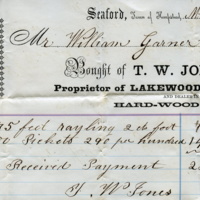 Seaford, Town of Hempstead,
Mr. William Garner
Bought of T. W. JO
Proprietor of LAKEWOOD
AND DEALER
HARD-WOOD
5 feet rayling 2 cts foot
00 Pickets 240 per hundred 14
Received Payment
T. W. Jones